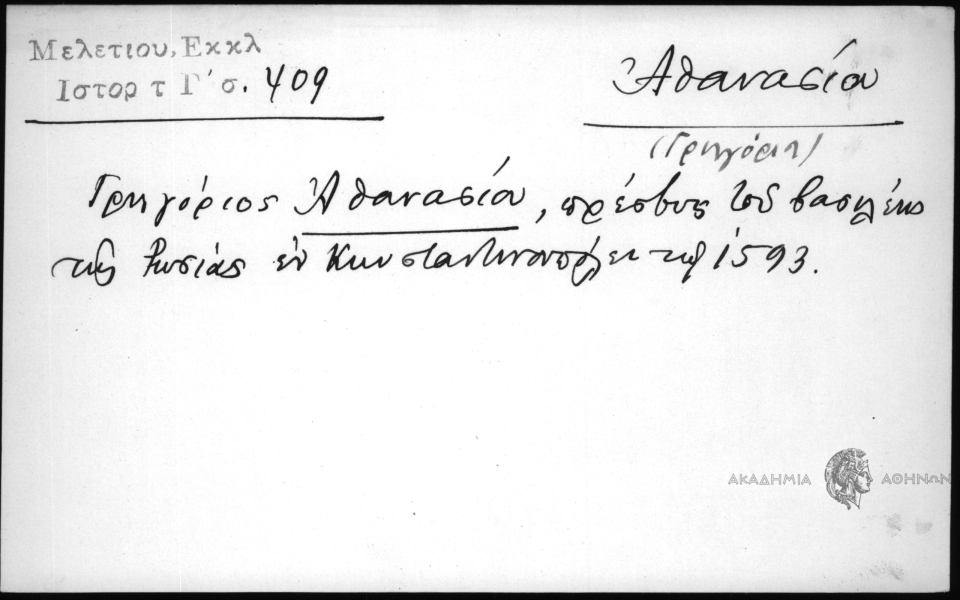 Μελετιου, Εκκλ
Ιστορ τ Γ΄ σ. 409
Ἀθανασία
(Γρηγόρη)
Γρηγόριος Ἀθανασία, πρέσβυς τοῦ βασιλέως
τῆς Ρωσίας ἐν Κωνσταντινουπόλει τῷ 1593.
ΑΚΑΔΗΜΙΑ ΑΘΗΝΩΝ